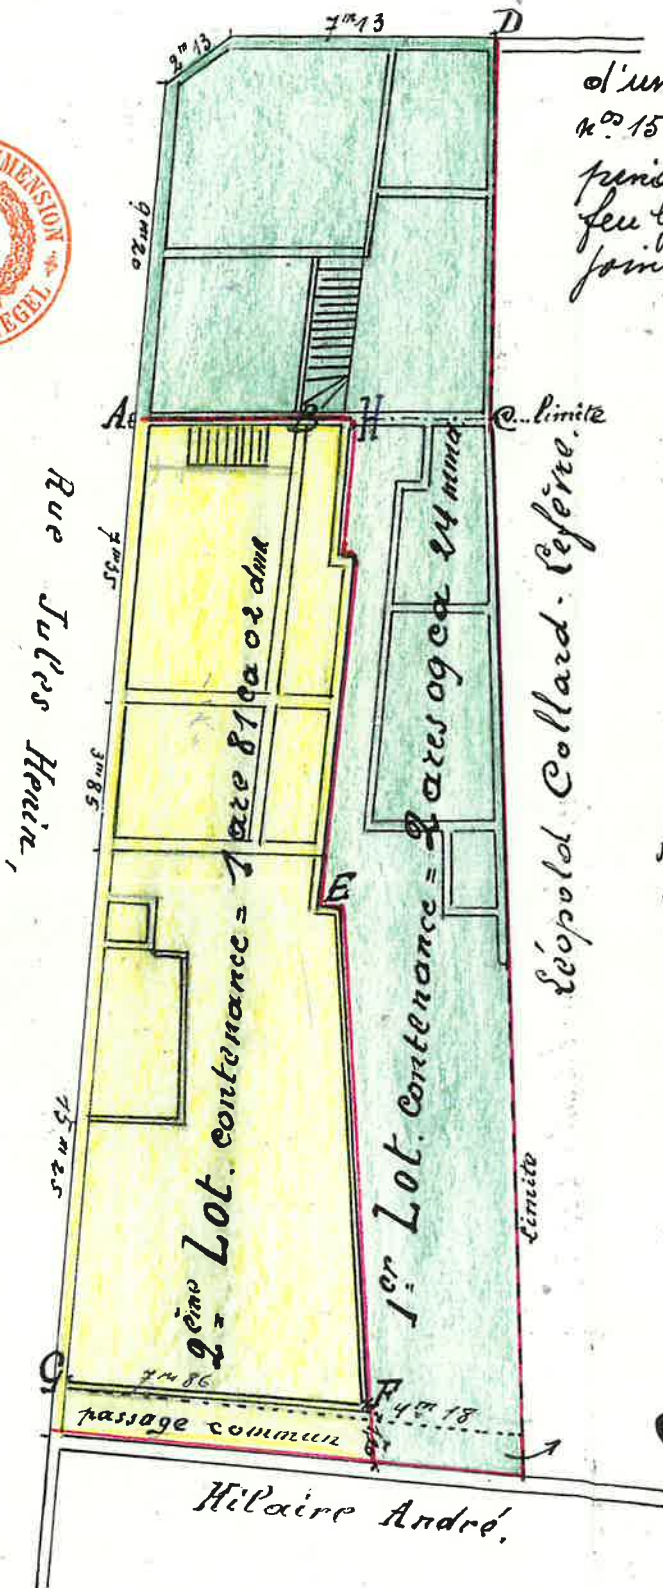 7m13
D
2m13
d'un
nos 15
feu
join
MENSION
EGEL
9m20
A
B
H
C...limite
Rue Jules Henin,
7m35
3m85
15m25
2ème Lot. contenance = 1 are 81 ca 02 dm²
1er Lot. contenance = 2 ares 09 ca 24 mm²
Léopold Collard-Lefèvre.
E
Limite
G
7m86
F
4m18
passage commun
1
Hilaire André.